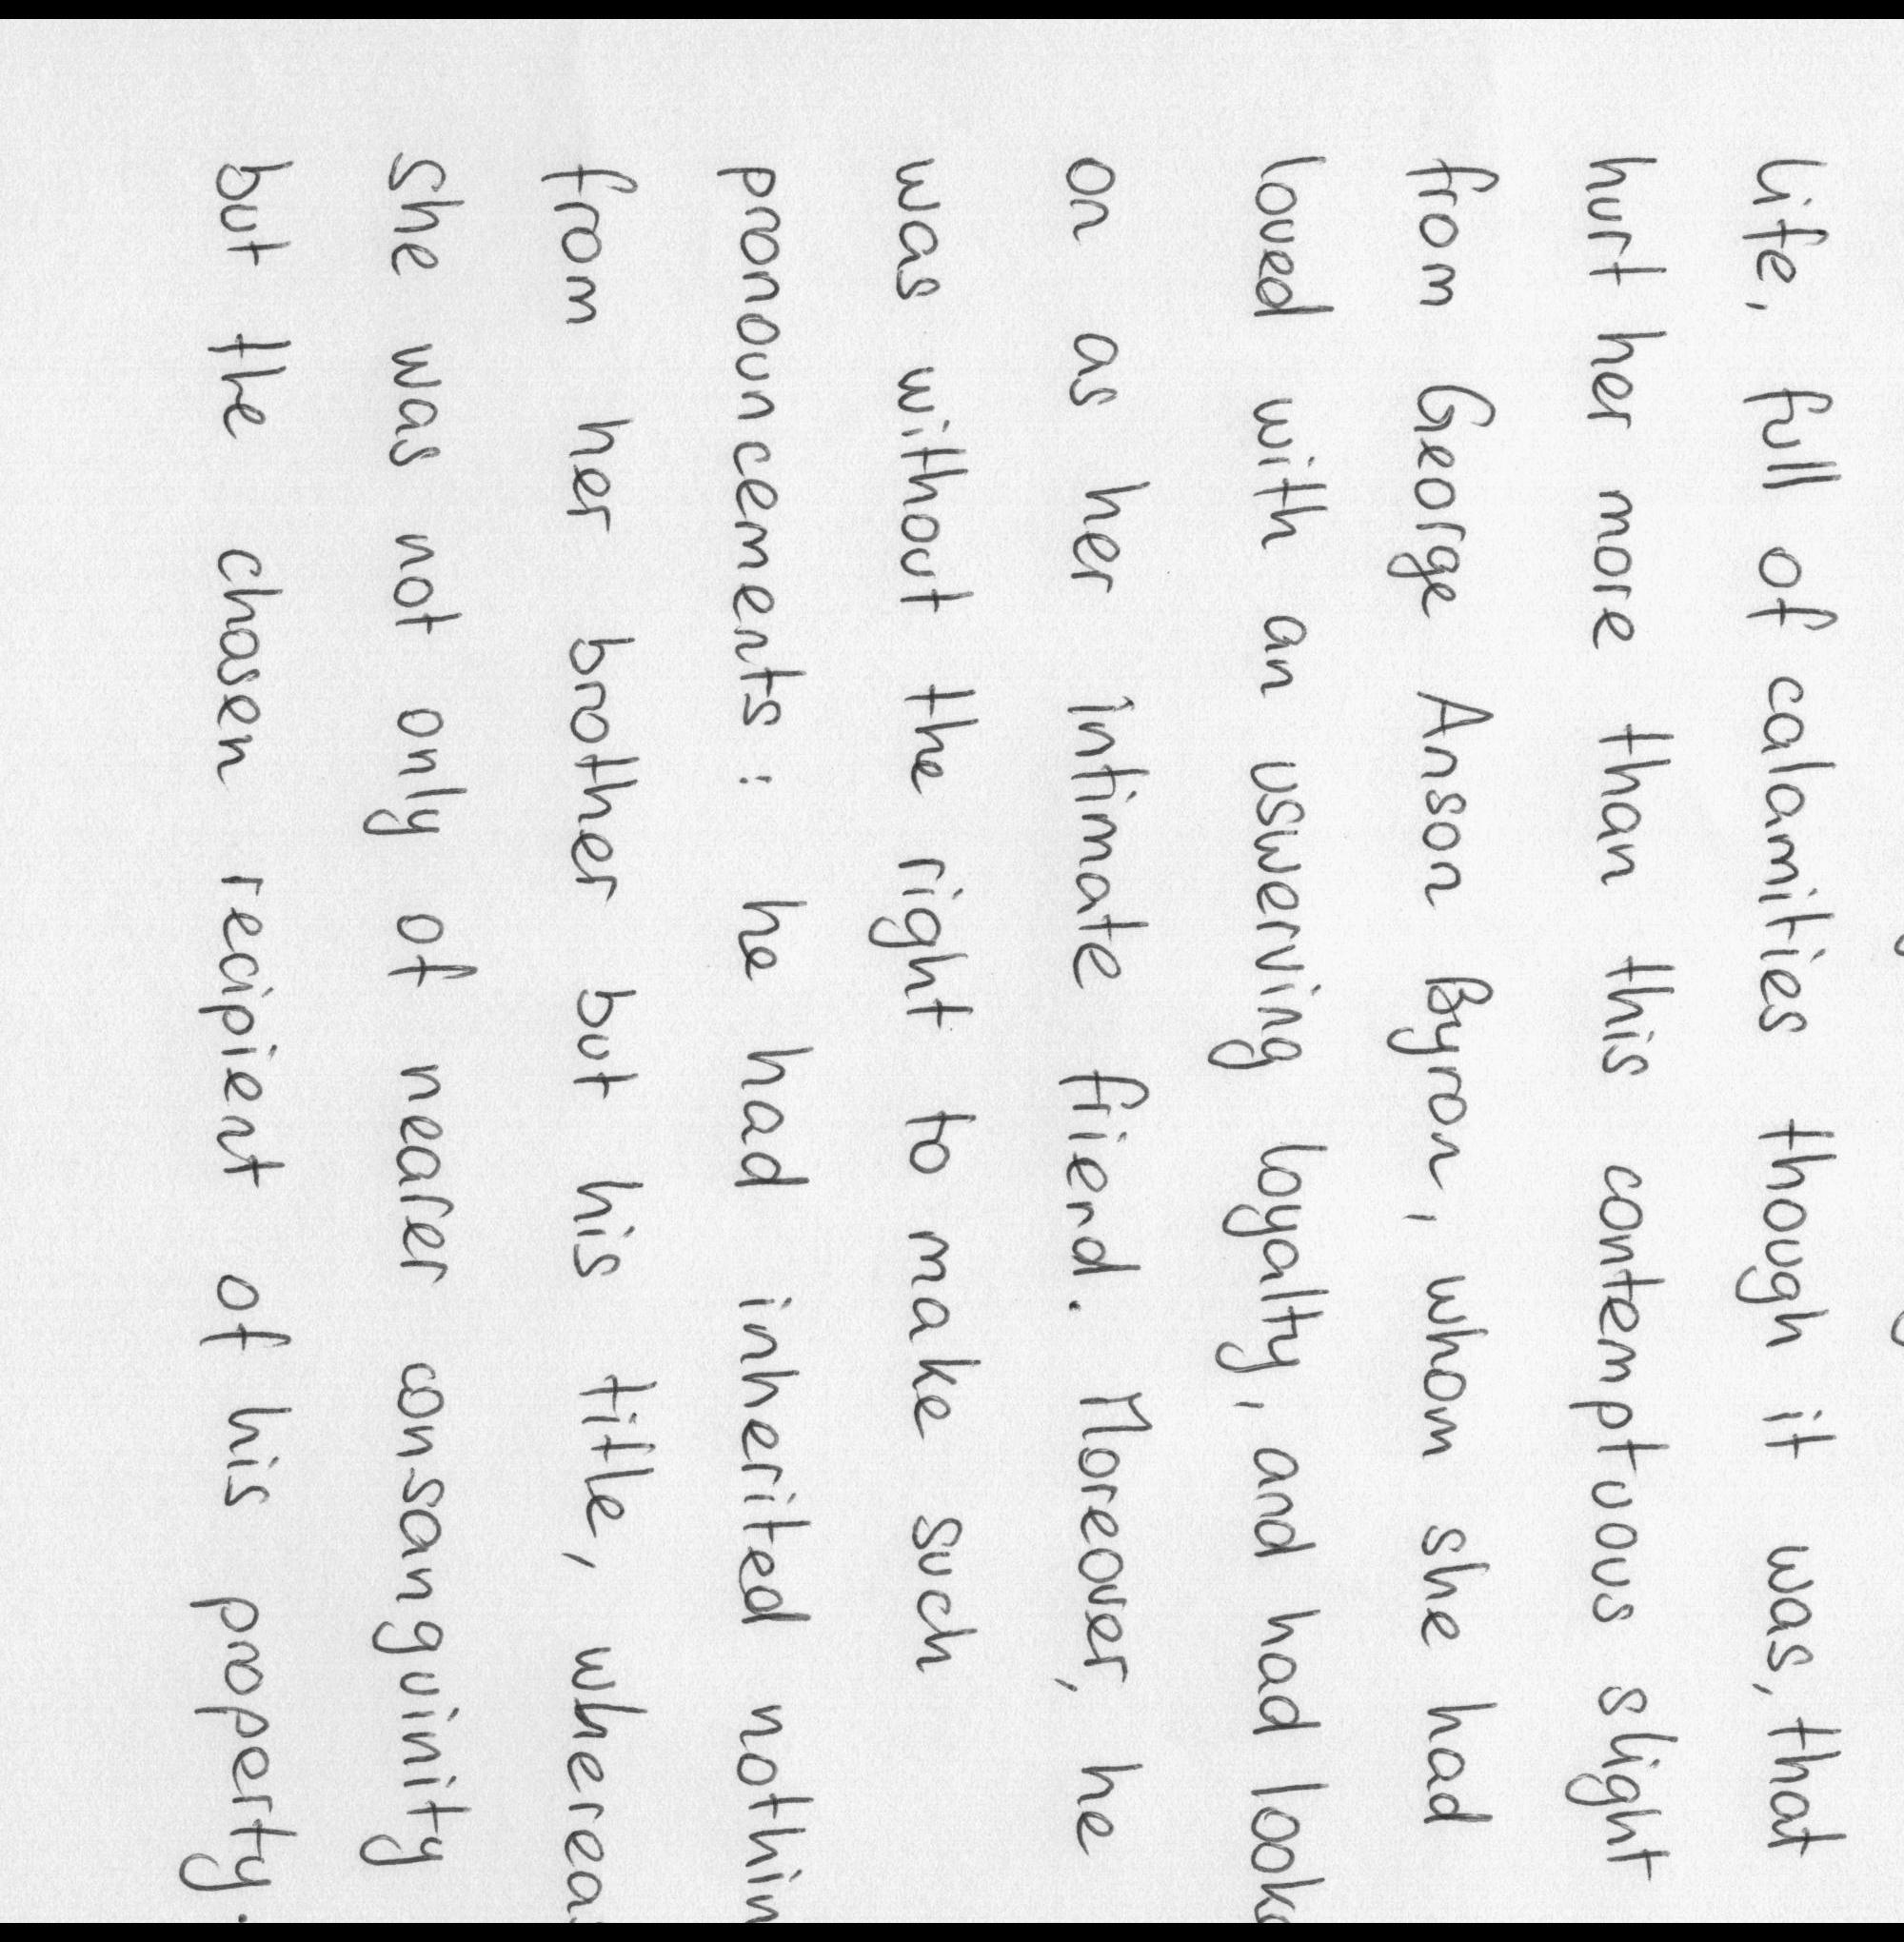 life, full of calamities though it was, that
hurt her more than this contemptuous slight
from George Anson Byron, whom she had
loved with an uswerving loyalty, and had look
on as her intimate friend. Moreover, he
was without the right to make such
pronouncements : he had inherited nothin
from her brother but his title, wherea
she was not only of nearer consanguinity
but the chosen recipient of his property.